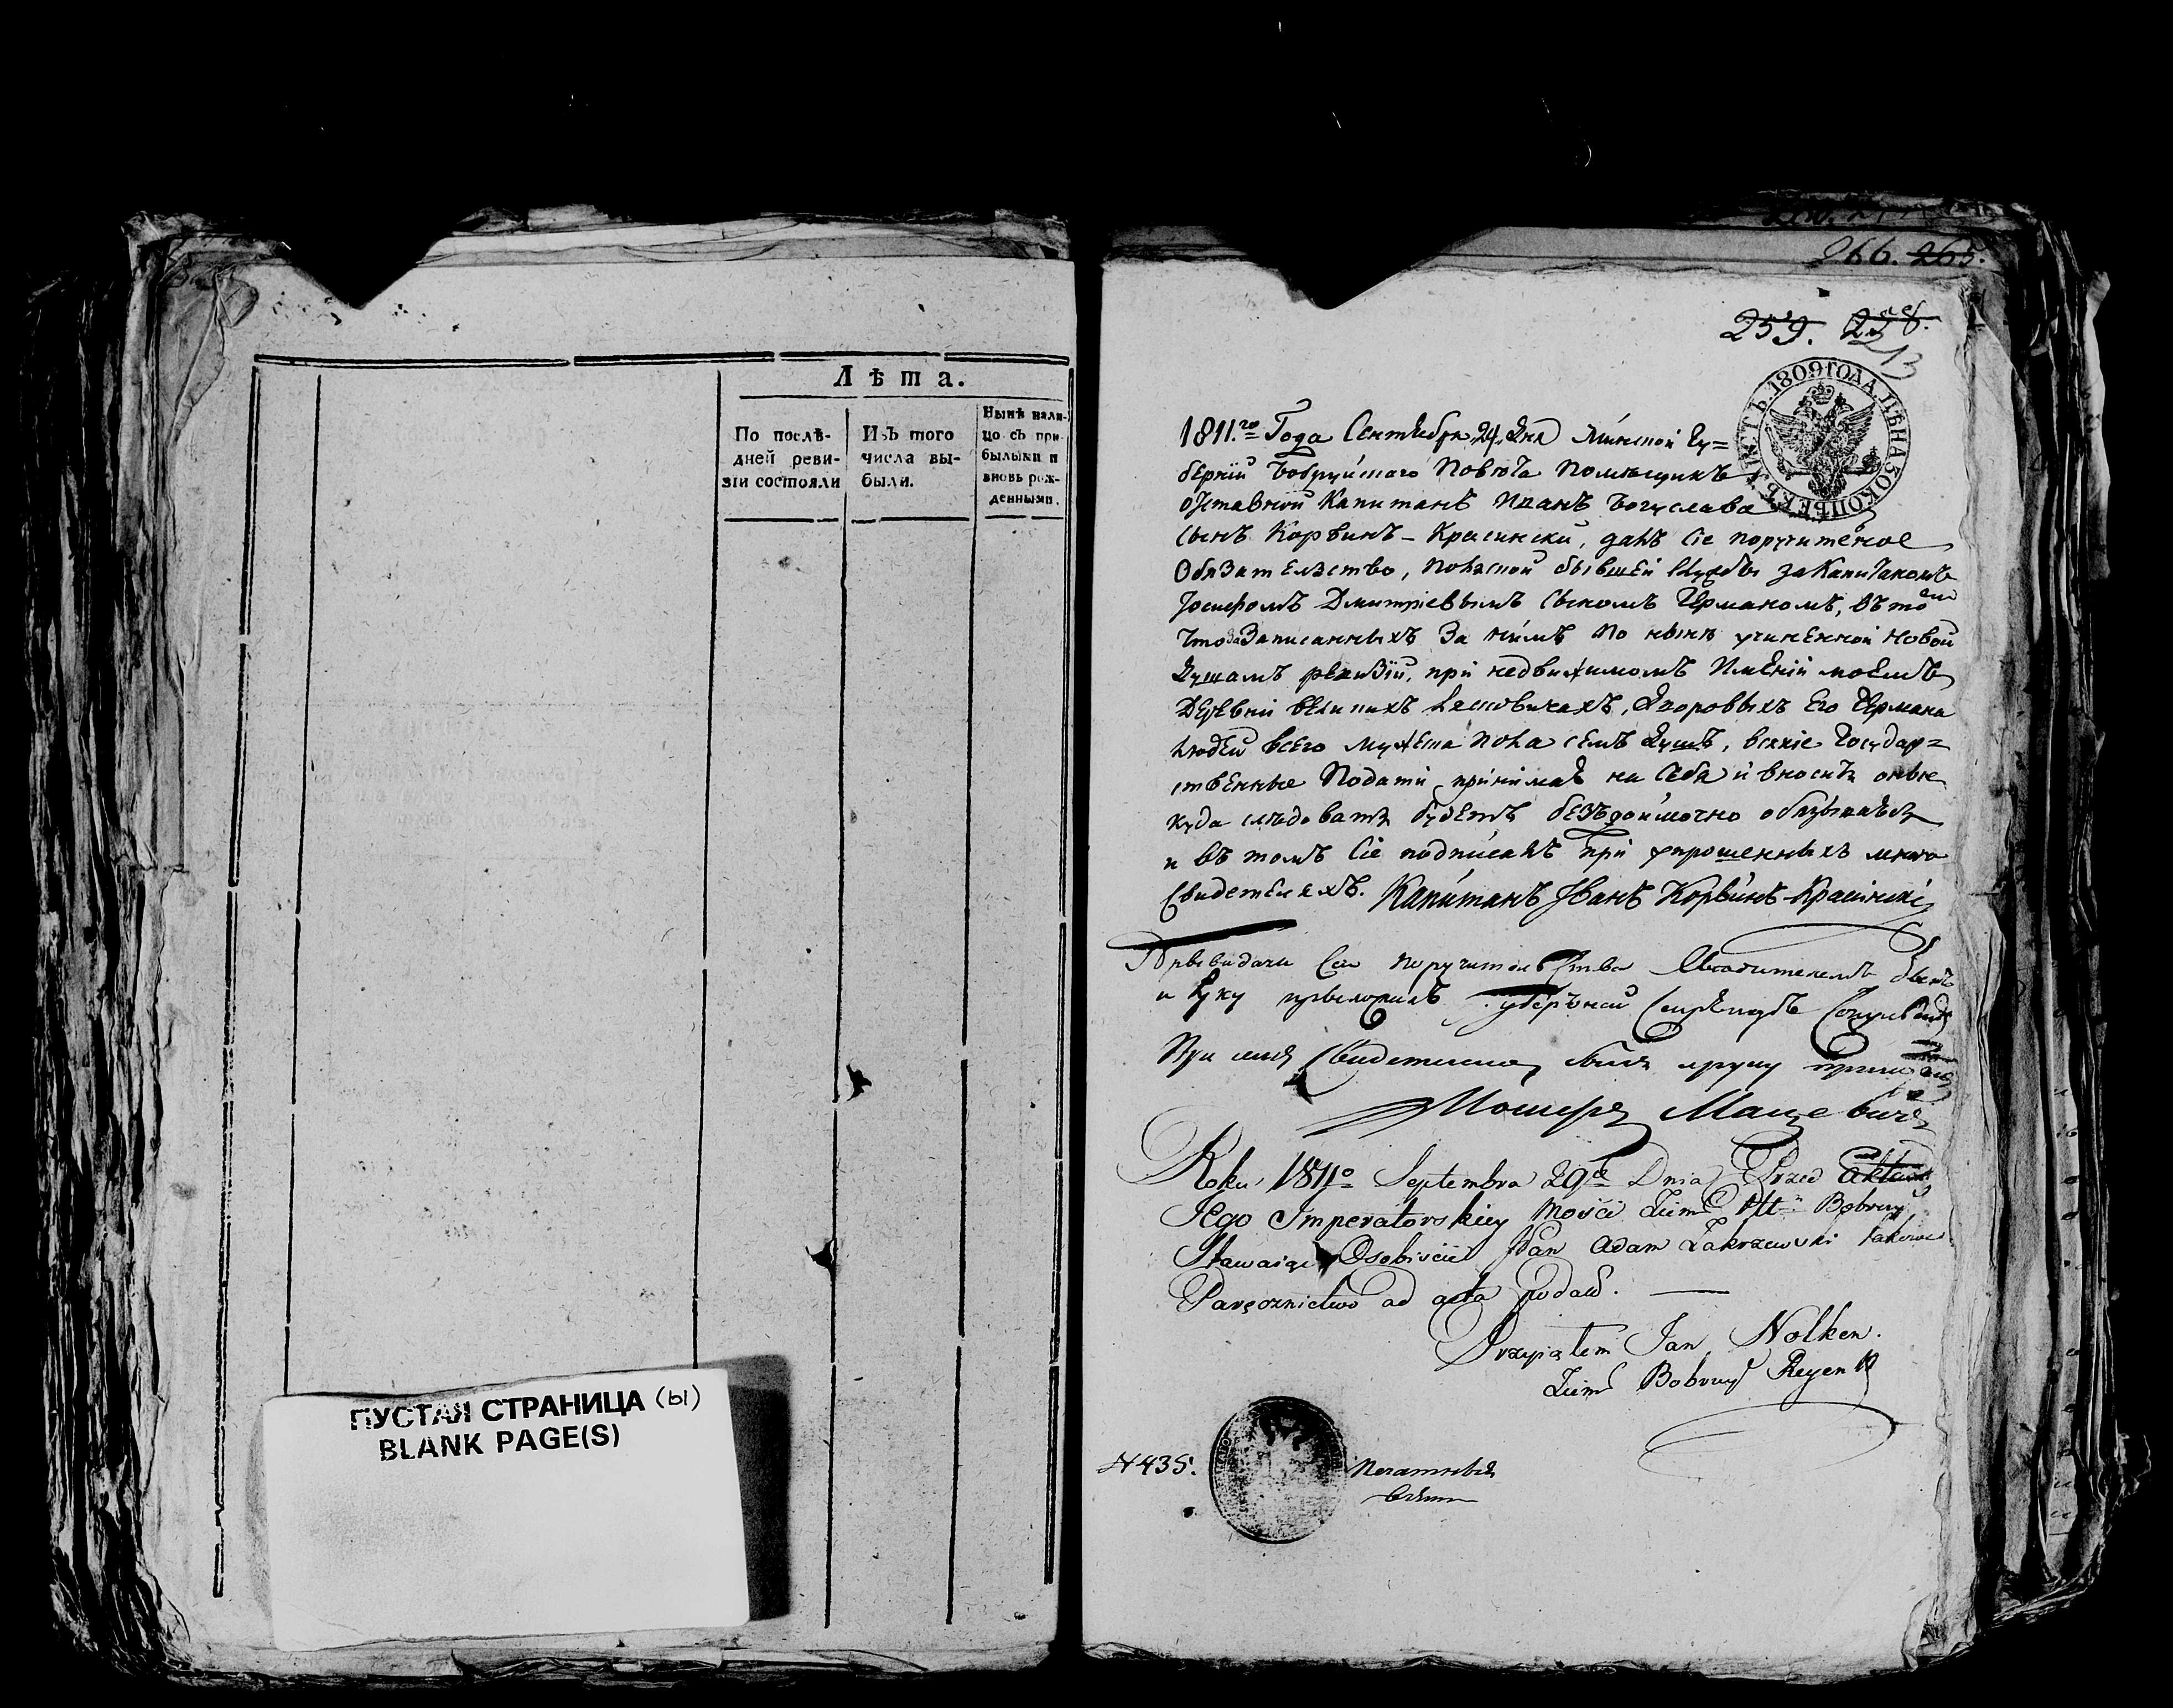 Лѣта.
По послѣ-
дней реви-
зіи состояли
Изъ того
числа вы-
были.
Нынѣ нали-
цо съ при-
былыми и
вновь рож-
денными.
ПУСТАЯ СТРАНИЦА (ы)
BLANK PAGE(S)
266. 265.
259. 258.
213
ЛИСТЪ. 1809 ГОДА ЦѢНА 50 КОПѢЕКЪ
1811.го Года Сентября 24 дня Минской Гу=
берніи Бобруйскаго Повѣта Помѣщикъ
отставной Капитанъ Иванъ Богуслава
сынъ Корвинъ-Красински, далъ сіе поручителное
Обязателство, Полской бывшей службы за Капитаномъ
Іосифомъ Дмитріевымъ сыномъ Германомъ, въ томъ
что за Записанныхъ За нимъ по нынѣ учиненной новой
душамъ ревизіи, при недвижимомъ Имѣніи моемъ
Деревни Великихъ, дворовыхъ Его Германа
людей всего мужеска пола семъ душъ, всякіе Государ=
ственные Подати принимая на себя и вносить оные
куда слѣдовать будетъ бездоимочно обязываюсь
и въ томъ сіе подписалъ при упрошенныхъ мною
Свидетеляхъ. Капитанъ Иванъ Корвинъ-Красинскі
Поручителства былъ
и Руку приложилъ Губернскій Секретарь
При семъ Свидетелемъ былъ и руку приложилъ
Мацевичъ
Roku 1811o Septembra 29o Dnia Przed Aktami
Jego Imperatorskiey Mości Ziem Ptt Bobruy
Stawaiąc Osobiście Pan Adam Zakrzewski takowe
Paręcznictwo ad acta podał.
Przyiąłem Jan Nolken.
Ziem Bobruy Regent
N 435.
Печатныя